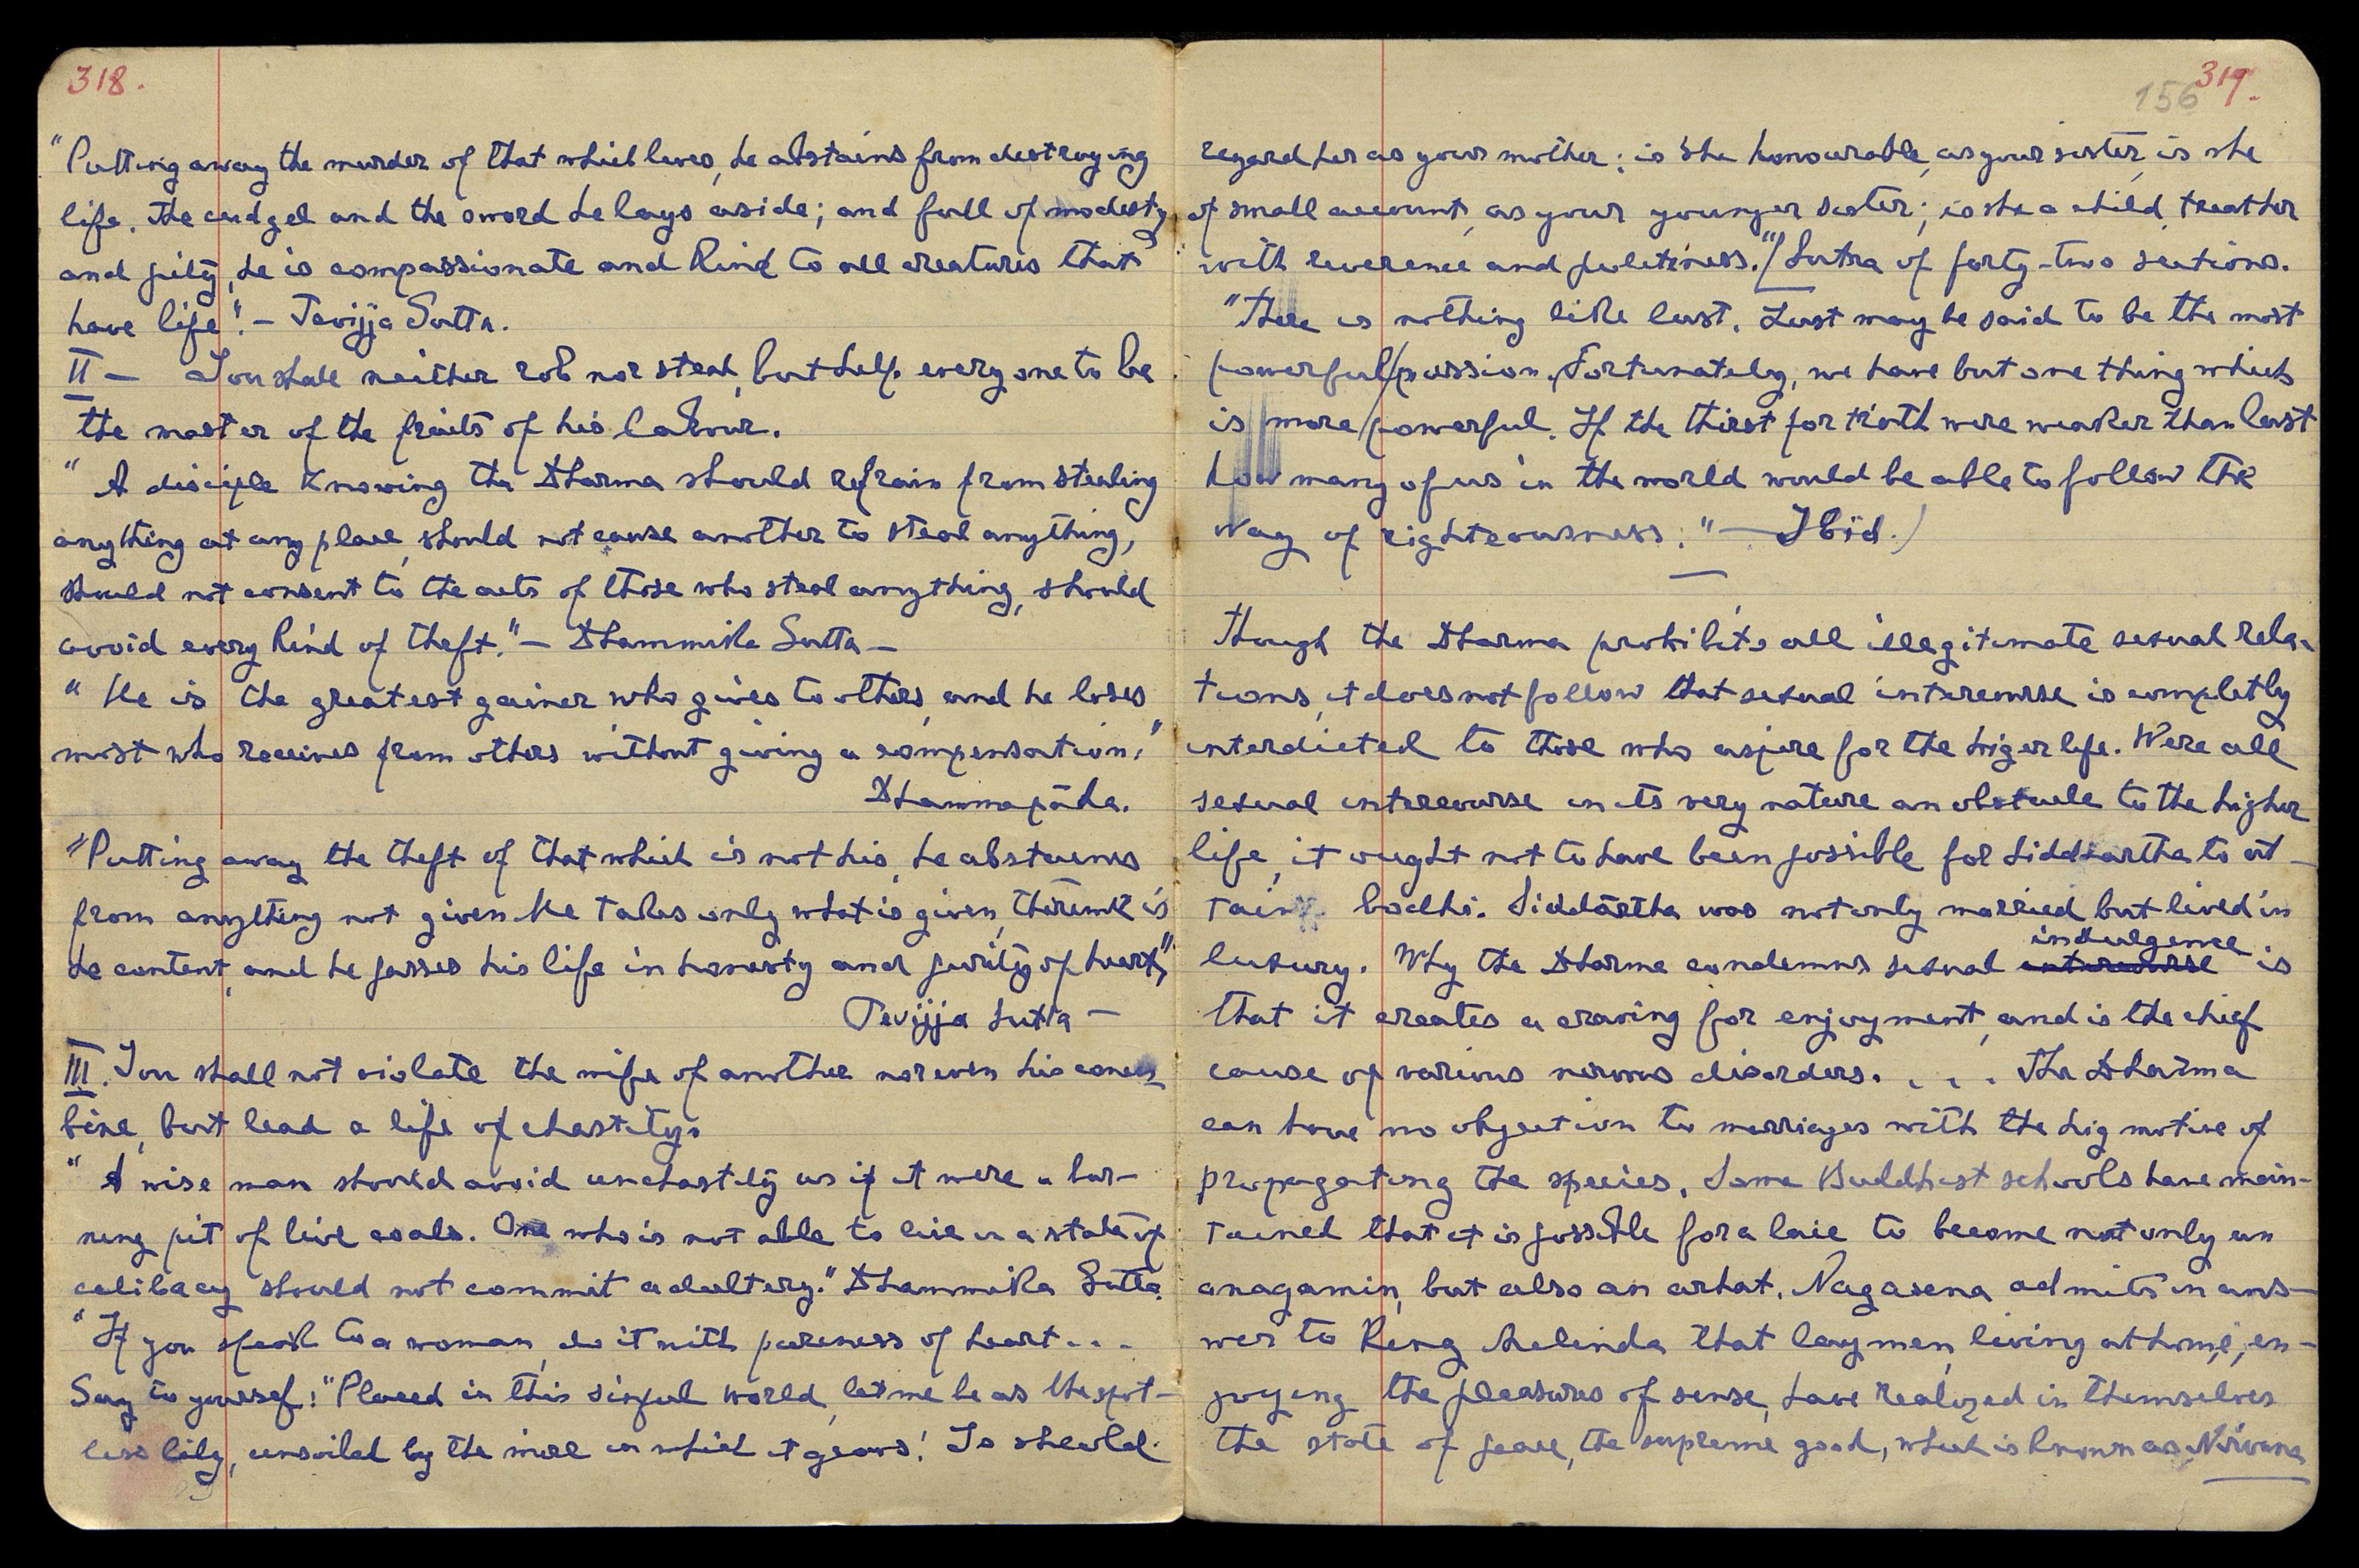 318.
"Putting away the murder of that which lives, he abstains from destroying
life. The cudgel and the sword he lays aside; and full of modesty
and pity, he is compassionate and kind to all creatures that
have life". – Tevijja Sutta.
II – You shall neither rob nor steal, but help every one to be
the master of the fruits of his labour.
"A disciple knowing the Dharma should refrain from stealing
anything at any place, should not cause another to steal anything,
should not consent to the acts of those who steal anything, should
avoid every kind of theft." – Dhammika Sutta –
"He is the greatest gainer who gives to others, and he loses
most who receives from others without giving a compensation."
Dhammapada.
"Putting away the theft of that which is not his, he abstains
from anything not given. He takes only what is given, therewith is
he content, and he passes his life in honesty and purity of heart,"
Tevijja Sutta –
III. You shall not violate the wife of another nor even his concu-
bine, but lead a life of chastity.
"A wise man should avoid unchastity as if it were a bur-
ning pit of live coals. One who is not able to live in a state of
celibacy should not commit adultery." Dhammika Sutta.
"If you speak to a woman, do it with pureness of heart...
Say to yoursef: "Placed in this sinful world, let me be as the spot-
less lily, unsoiled by the mire in which it grows! Is she old.
156 319.
regard her as your mother; is she honourable, as your sister, is she
of small account, as your younger sister; is she a child, treat her
with reverence and politeness."/ Sutra of forty-two sections.
"There is nothing like lust. Lust may be said to be the most
powerful passion. Fortunately, we have but one thing which
is more powerful. If the thirst for truth were weaker than lust
how many of us in the world would be able to follow the
way of righteousness." – Ibid.)
Though the Dharma prohibits all illegitimate sexual rela-
tions, it does not follow that sexual intercourse is completly
interdicted to those who aspire for the higer life. Were all
sexual intercourse in its very nature an obstacle to the higher
life, it ought not to have been possible for Siddhartha to at-
tain bodhi. Siddartha was not only married but lived in
luxury. Why the Dharma condemns sexual intercourse indulgence is
that it creates a craving for enjoyment, and is the chief
cause of various nervous disorders. . . . The Dharma
can have no objection to marriages with the hig motive of
propagating the species. Some Buddhist schools have main-
tained that it is possible for a laic to become not only an
anagamin, but also an arhat. Nagasena admits in ans-
wer to King Melinda that laymen, living at home, en-
joying the pleasures of sense, have realized in themselves
the state of peace, the supreme good, which is known as Nirvana